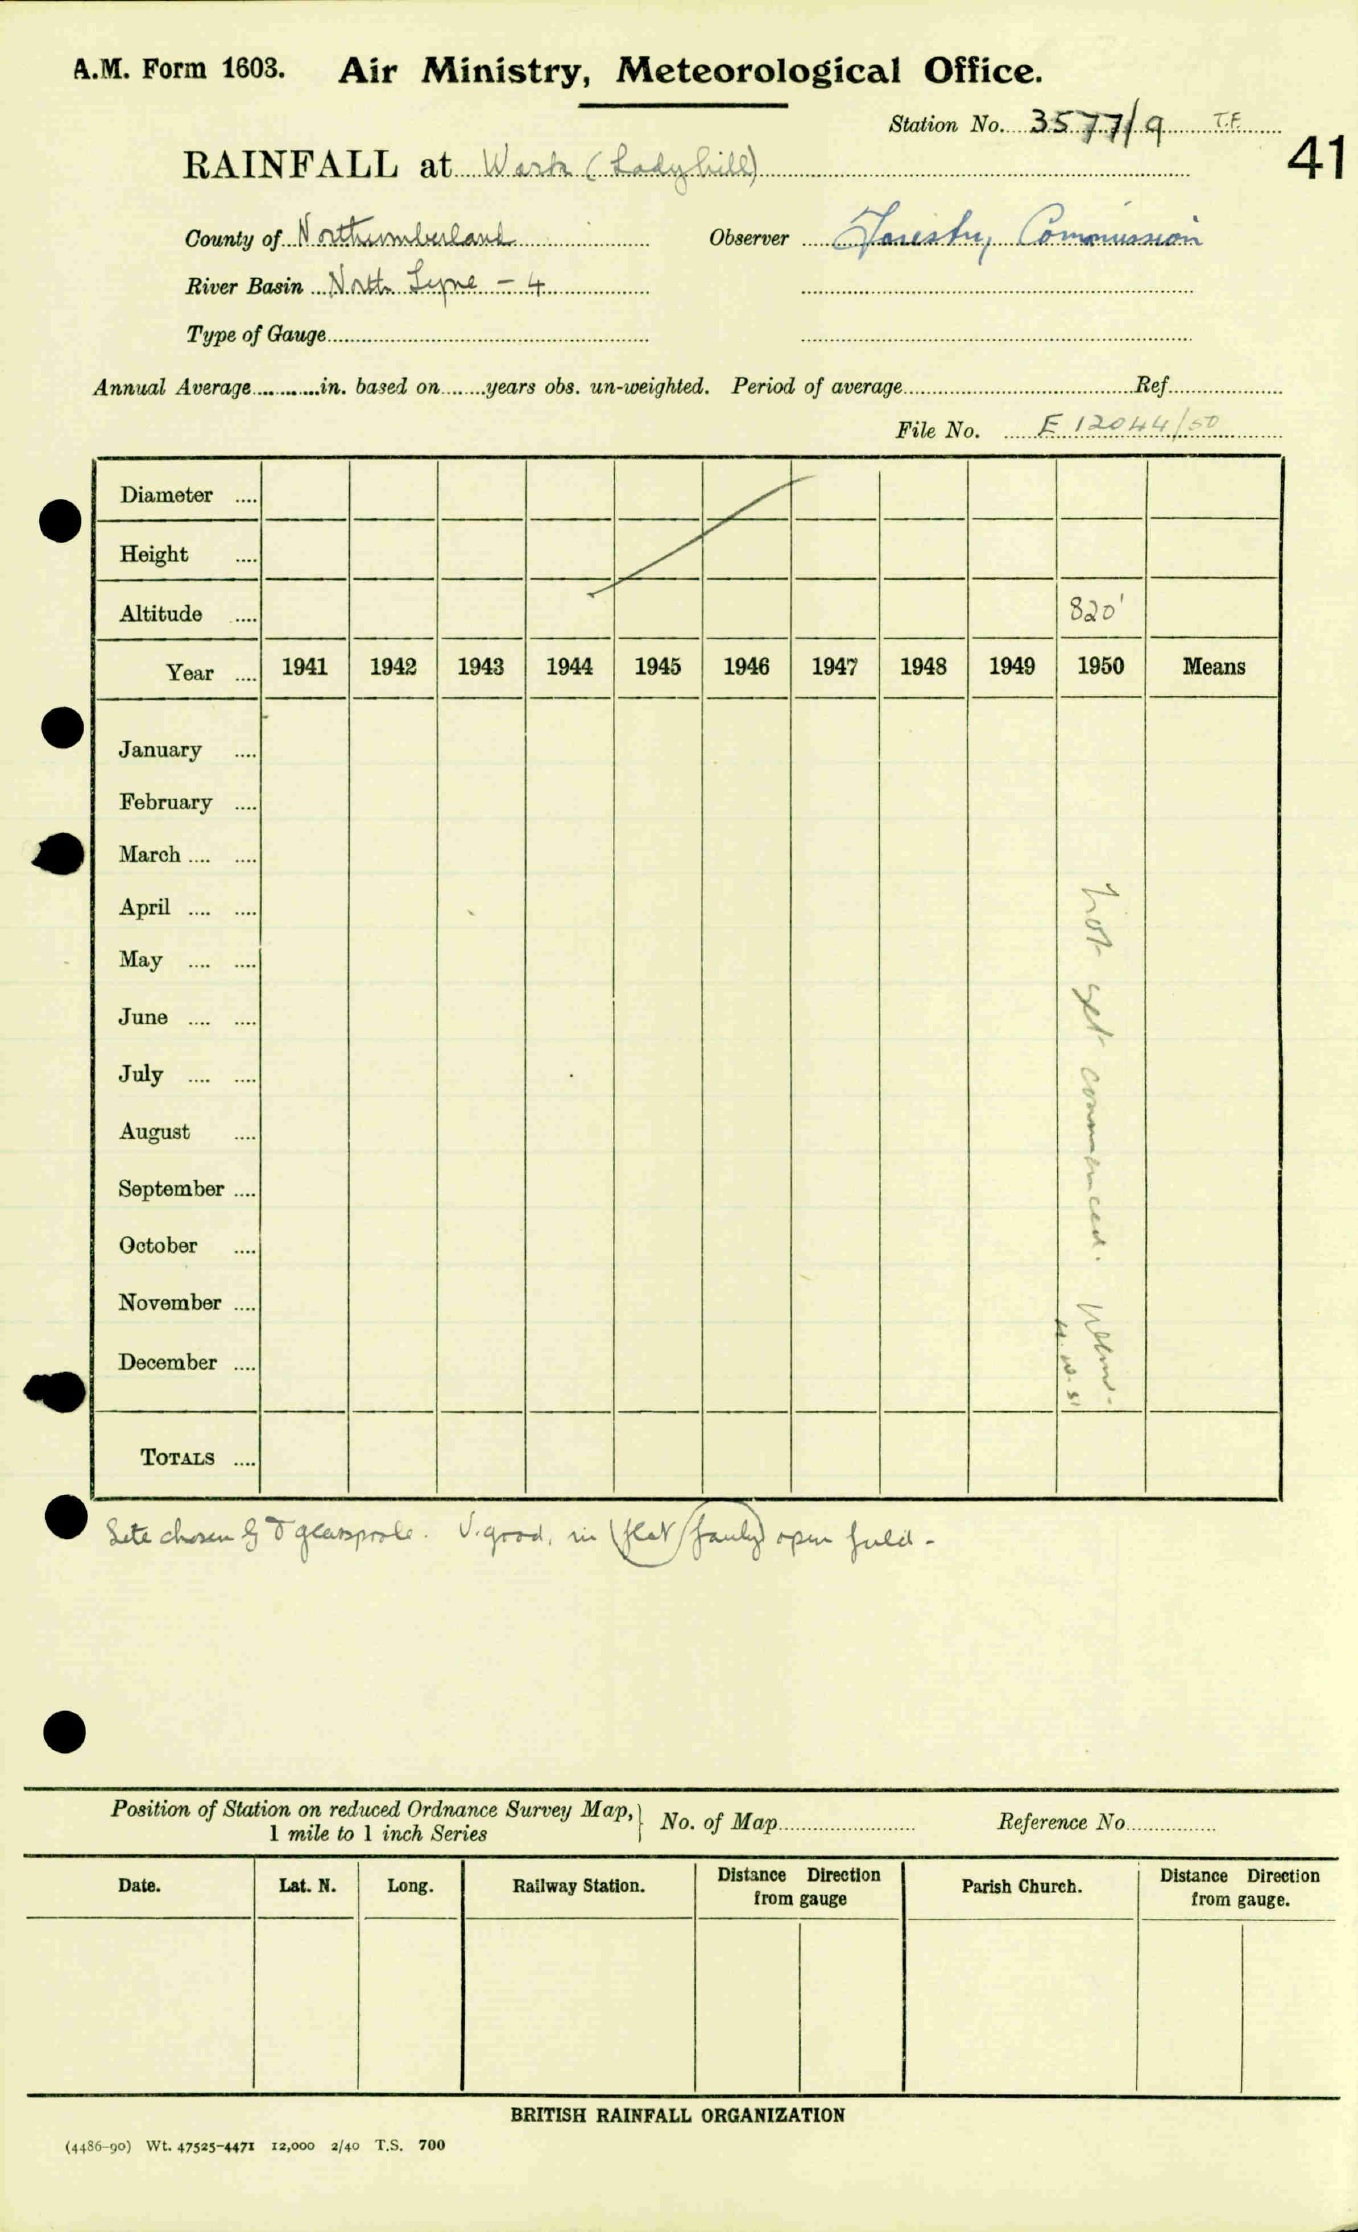 A.M. Form 1603. Air Ministry, Meteorological Office.
Station No. 3577/9 T.F.
41
RAINFALL at Wark (Ladyhill)
County of Northumberland Observer Forestry Commission
River Basin North Tyne - 4
Type of Gauge
Annual Average in. based on years obs. un-weighted. Period of average Ref
File No. E 12044/50
Diameter ....
Height ....
Altitude .... 820'
Year .... 1941 1942 1943 1944 1945 1946 1947 1948 1949 1950 Means
January ....
February ....
March .... ....
April .... ....
May .... ....
June .... ....
July .... ....
August ....
September ....
October ....
November ....
December ....
Not yet commenced.
TOTALS ....
Site chosen by Glasspoole. V. good, in (flat) (fairly) open field -
Position of Station on reduced Ordnance Survey Map,
1 mile to 1 inch Series
No. of Map Reference No
Date. Lat. N. Long. Railway Station. Distance Direction from gauge Parish Church. Distance Direction from gauge.
BRITISH RAINFALL ORGANIZATION
(4486-90) Wt. 47525-4471 12,000 2/40 T.S. 700